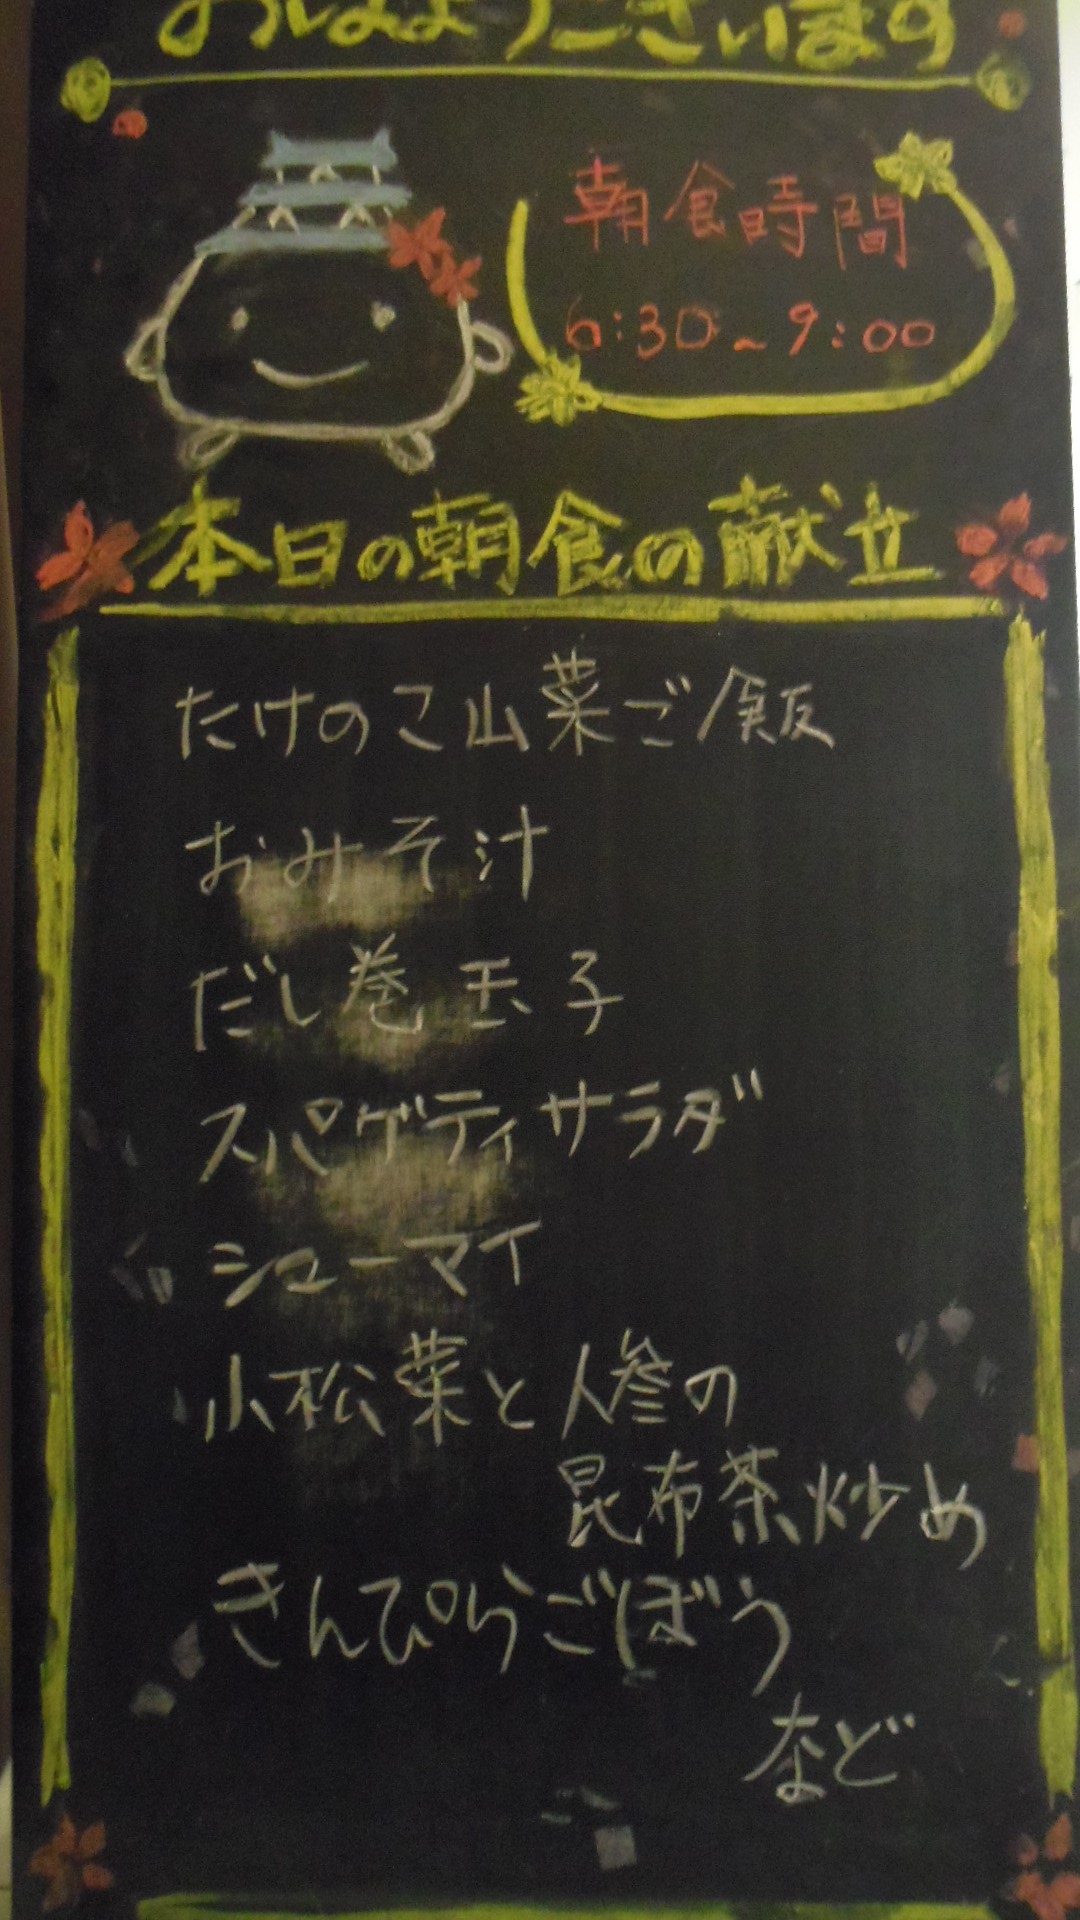 おはようございます
朝食時間
6:30~9:00
本日の朝食の献立
たけのこ山菜ご飯
おみそ汁
だし巻玉子
スパゲティサラダ
シューマイ
小松菜と人参の
昆布茶炒め
きんぴらごぼう
など